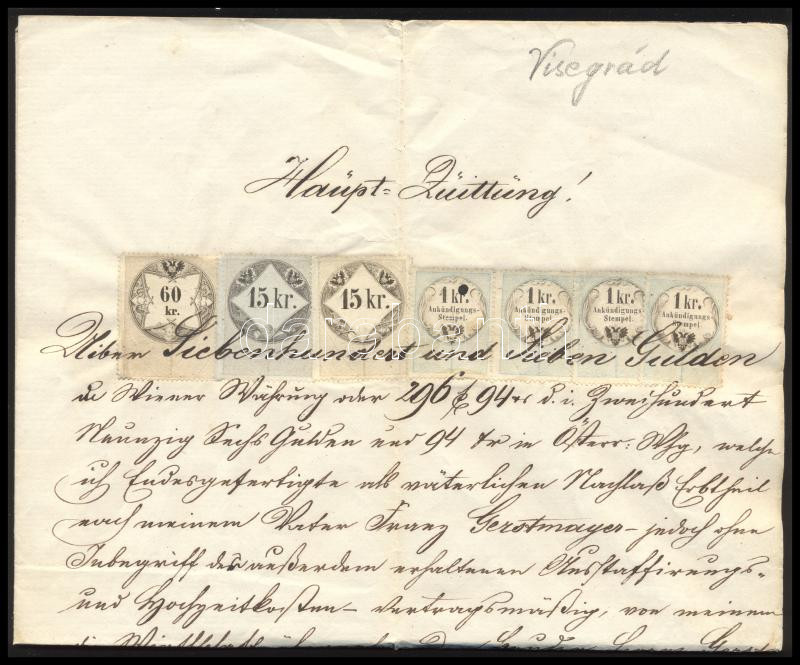 Visegrád
Haupt=Quittung!
60 kr.
15 kr.
15 kr.
1 kr. Ankündigungs- Stempel.
1 kr. Ankündigungs- Stempel.
1 kr. Ankündigungs- Stempel.
1 kr. Ankündigungs- Stempel.
Über Siebenhundert und Sieben Gulden
Wiener Währung oder 296 f 94 kr d. i. Zweihundert
Neunzig Sechs Gulden und 94 kr in Österr: Whg, welche
ich Endesgefertigte als väterlichen Nachlaß Erbtheil
nach meinem Vater Franz Gerstmayer – jedoch ohne
Inbegriff der außerdem erhaltenen Ausstaffirungs-
und Hochzeitkosten – vertragsmäßig, von meinem